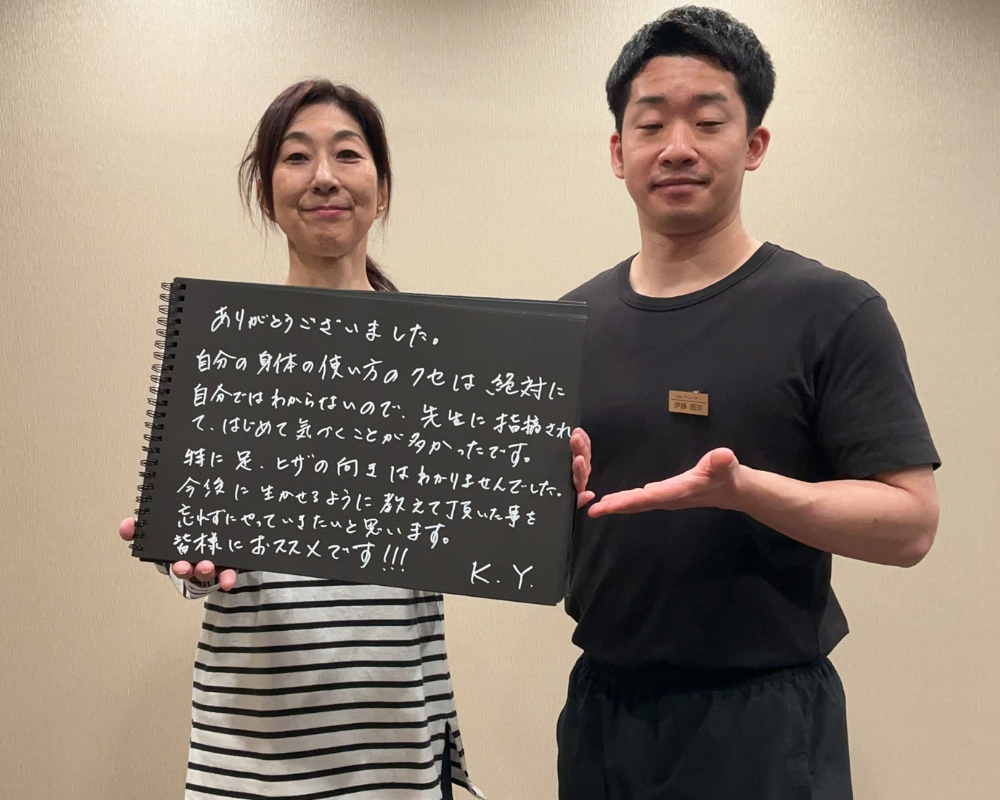 ありがとうございました。
自分の身体の使い方のクセは絶対に
自分ではわからないので、先生に指摘され
て、はじめて気づくことが多かったです。
特に足、ヒザの向きはわかりませんでした。
今後に生かせるように教えて頂いた事を
忘れずにやっていきたいと思います。
皆様におススメです!!!
K.Y.
伊藤